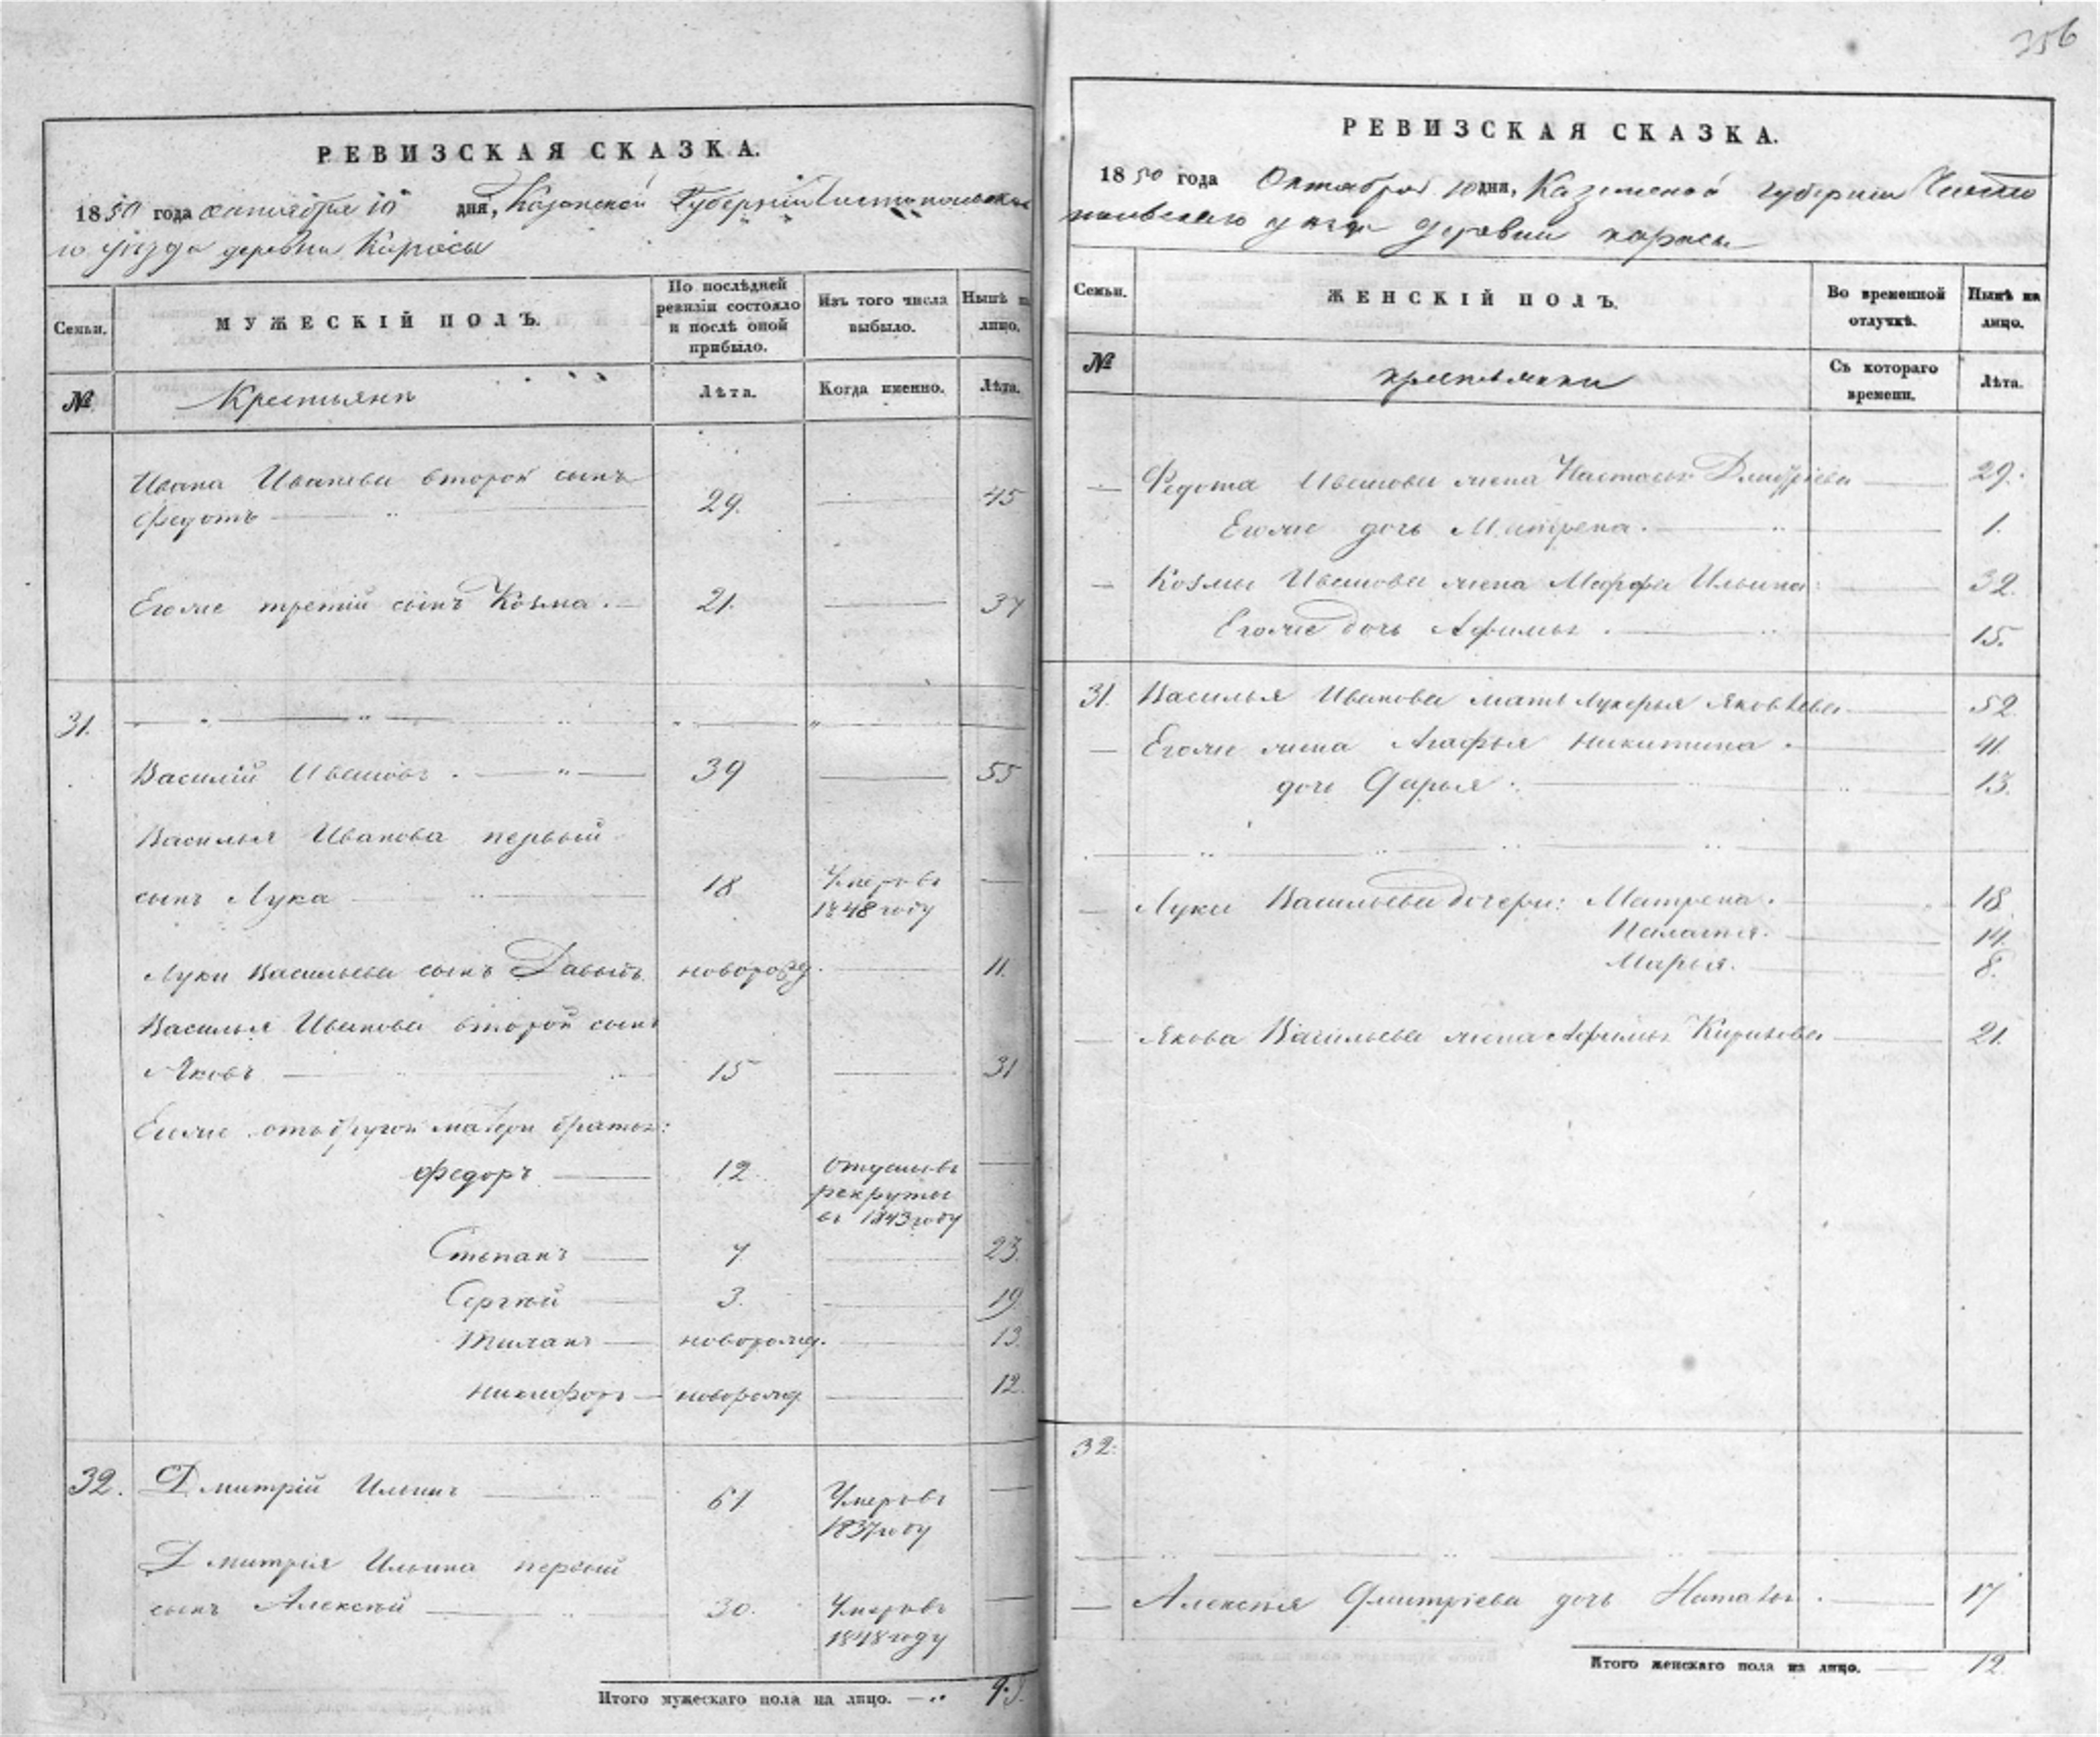 356
РЕВИЗСКАЯ СКАЗКА.
1850 года октября 10 дня, Казанской Губерніи Чистопольска
го уѣзда деревни Карасы
Семьи. МУЖЕСКІЙ ПОЛЪ. По послѣдней ревизіи состояло и послѣ оной прибыло. Изъ того числа выбыло. Нынѣ на лицо.
№ Крестьяне Лѣта. Когда именно. Лѣта.
Ивана Иванова второй сынъ
Федотъ 29. 45
Егоже третій сынъ Козма. 21. 37
31.
Василій Ивановъ. 39 55
Василья Иванова первый
сынъ Лука 18 Умеръ въ
1848 году
Луки Васильева сынъ Давыдъ новорожд. 11.
Василья Иванова второй сынъ
Яковъ 15 31
Егоже отъ другой матери братья:
Федоръ 12. Отданъ въ
рекруты
въ 1843 году
Степанъ 7 23.
Сергѣй 3. 19
новорожд. 13.
Никифоръ новорожд. 12.
32. Дмитрій Ильинъ 61 Умеръ въ
1837 году
Дмитрія Ильина первый
сынъ Алексѣй 30. Умеръ въ
1848 году
Итого мужескаго пола на лицо. 9.
РЕВИЗСКАЯ СКАЗКА.
1850 года Октября 10 дня, Казанской губерніи Чисто
польскаго уѣзда деревни карасы
Семьи. ЖЕНСКІЙ ПОЛЪ. Во временной отлучкѣ. Нынѣ на лицо.
№ крестьянки Съ котораго времени. Лѣта.
Федота Иванова жена Настасья Дмитріева 29.
Егоже дочь Матрена. 1.
Козмы Иванова жена Марфа Ильина 32.
Егоже дочь Афимья. 15.
31. Василья Иванова мать Лукерья Яковлева 52.
Егоже жена Агафья Никитина. 41.
дочь Дарья. 13.
Луки Васильева дочери: Матрена. 18.
Пелагея. 14.
Марья. 8.
Якова Васильева жена Афимья Кирилова 21.
32.
Алексѣя Дмитріева дочь Наталья. 17
Итого женскаго пола на лицо. 12.